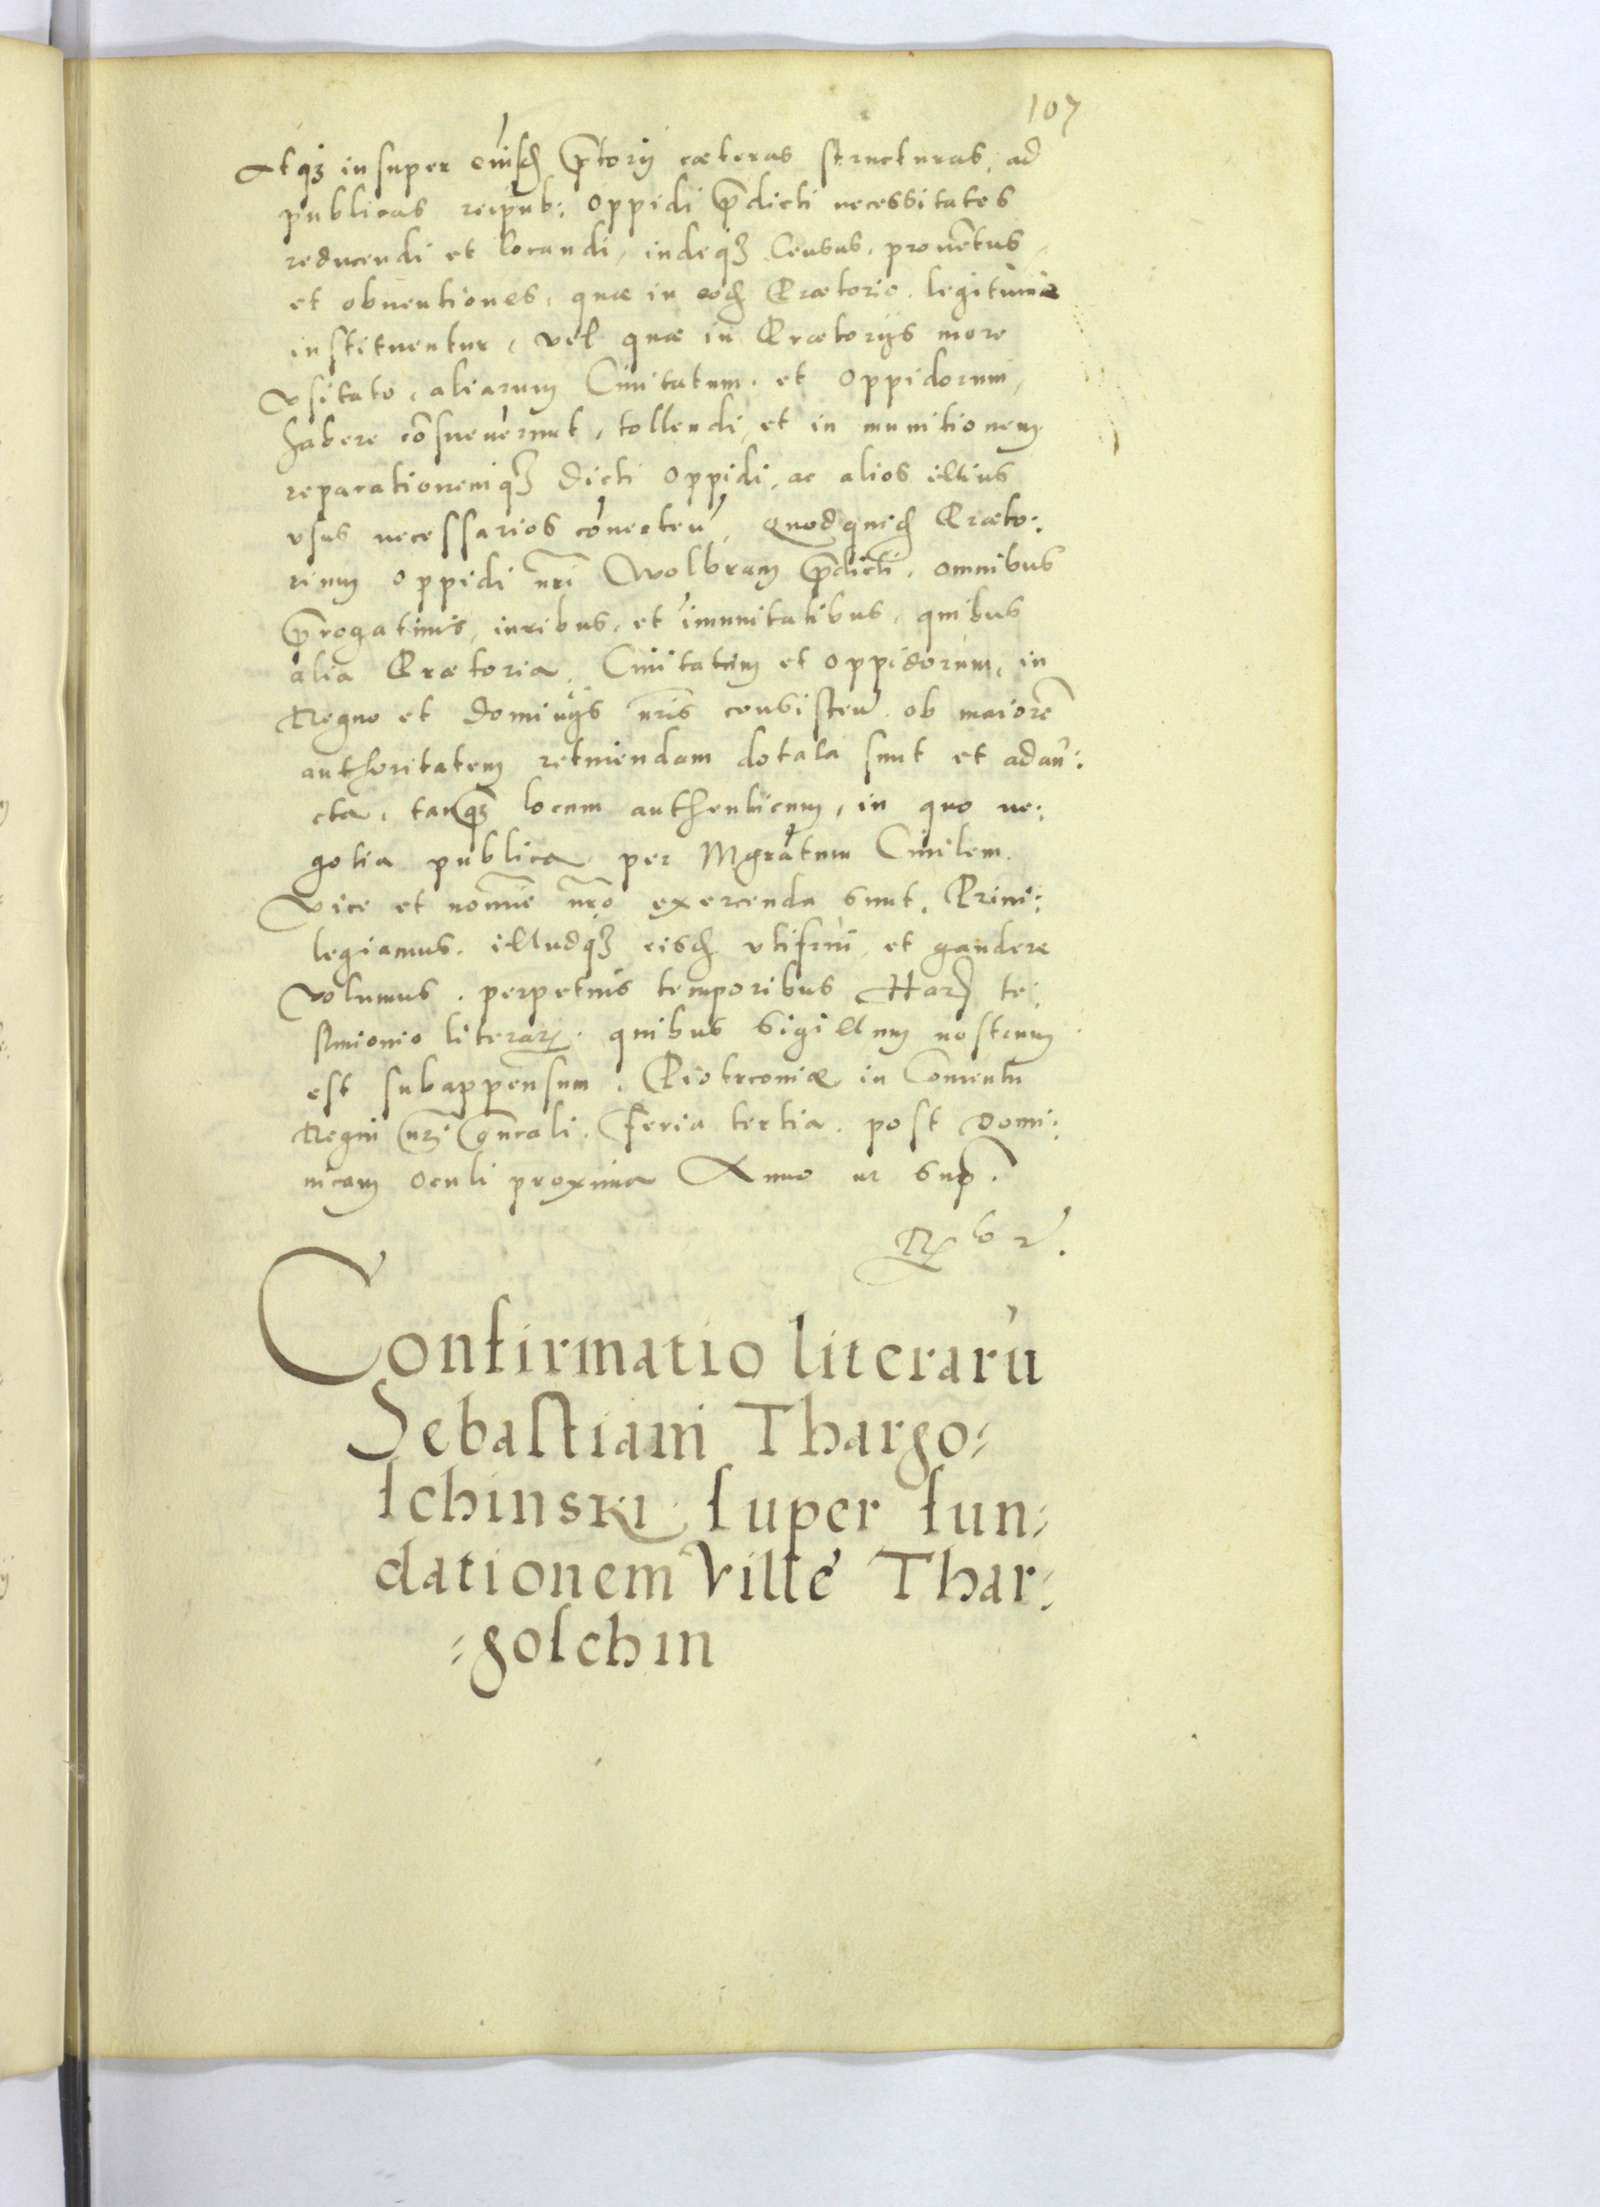 107
Atq₃ insuper eiusd p̄torij cæteras structuras, ad
publicas reipub: oppidi p̄dicti necessitates
reducendi et locandi, indeq₃ Census, prouētus
et obuentiones, quæ in eod Prætorio legitimæ
instituentur, vel quæ in Prætorijs more
vsitato, aliarum Ciuitatum et oppidorum,
habere cōsueuerunt, tollendi, et in munitionem
reparationemq₃ dicti oppidi, ac alios illius
vsus necessarios cōuerteñ, Quodquid Præto:
rium oppidi nr̄i Wolbram p̄dicti, omnibus
p̄rogatiuis, iuribus, et im̄unitatibus, quibus
alia Prætoria, Ciuitatum et oppidorum, in
Regno et dominijs nr̄is consisteñ ob maiorē
authoritatem retinendam dotata sunt et adau:
cta, tanq₃ locum authenticum, in quo ne:
gotia publica per Mgratum Ciuilem
vice et nomīe nr̄o exercenda sunt, Priui:
legiamus, illudq₃ eisd vtifrui, et gaudere
volumus, perpetuis temporibus Har te:
stimonio literar, quibus Sigillum nostrum
est subappensum, Piotrcoviæ in Conuentu
Regni nr̄i gn̄cali, feria tertia post Domi:
nicam Oculi proxima Anno ut sup̄.
Confirmatio literarū
Sebastiani Thargo-
schinski super fun-
dationem Ville Thar-
-goschin